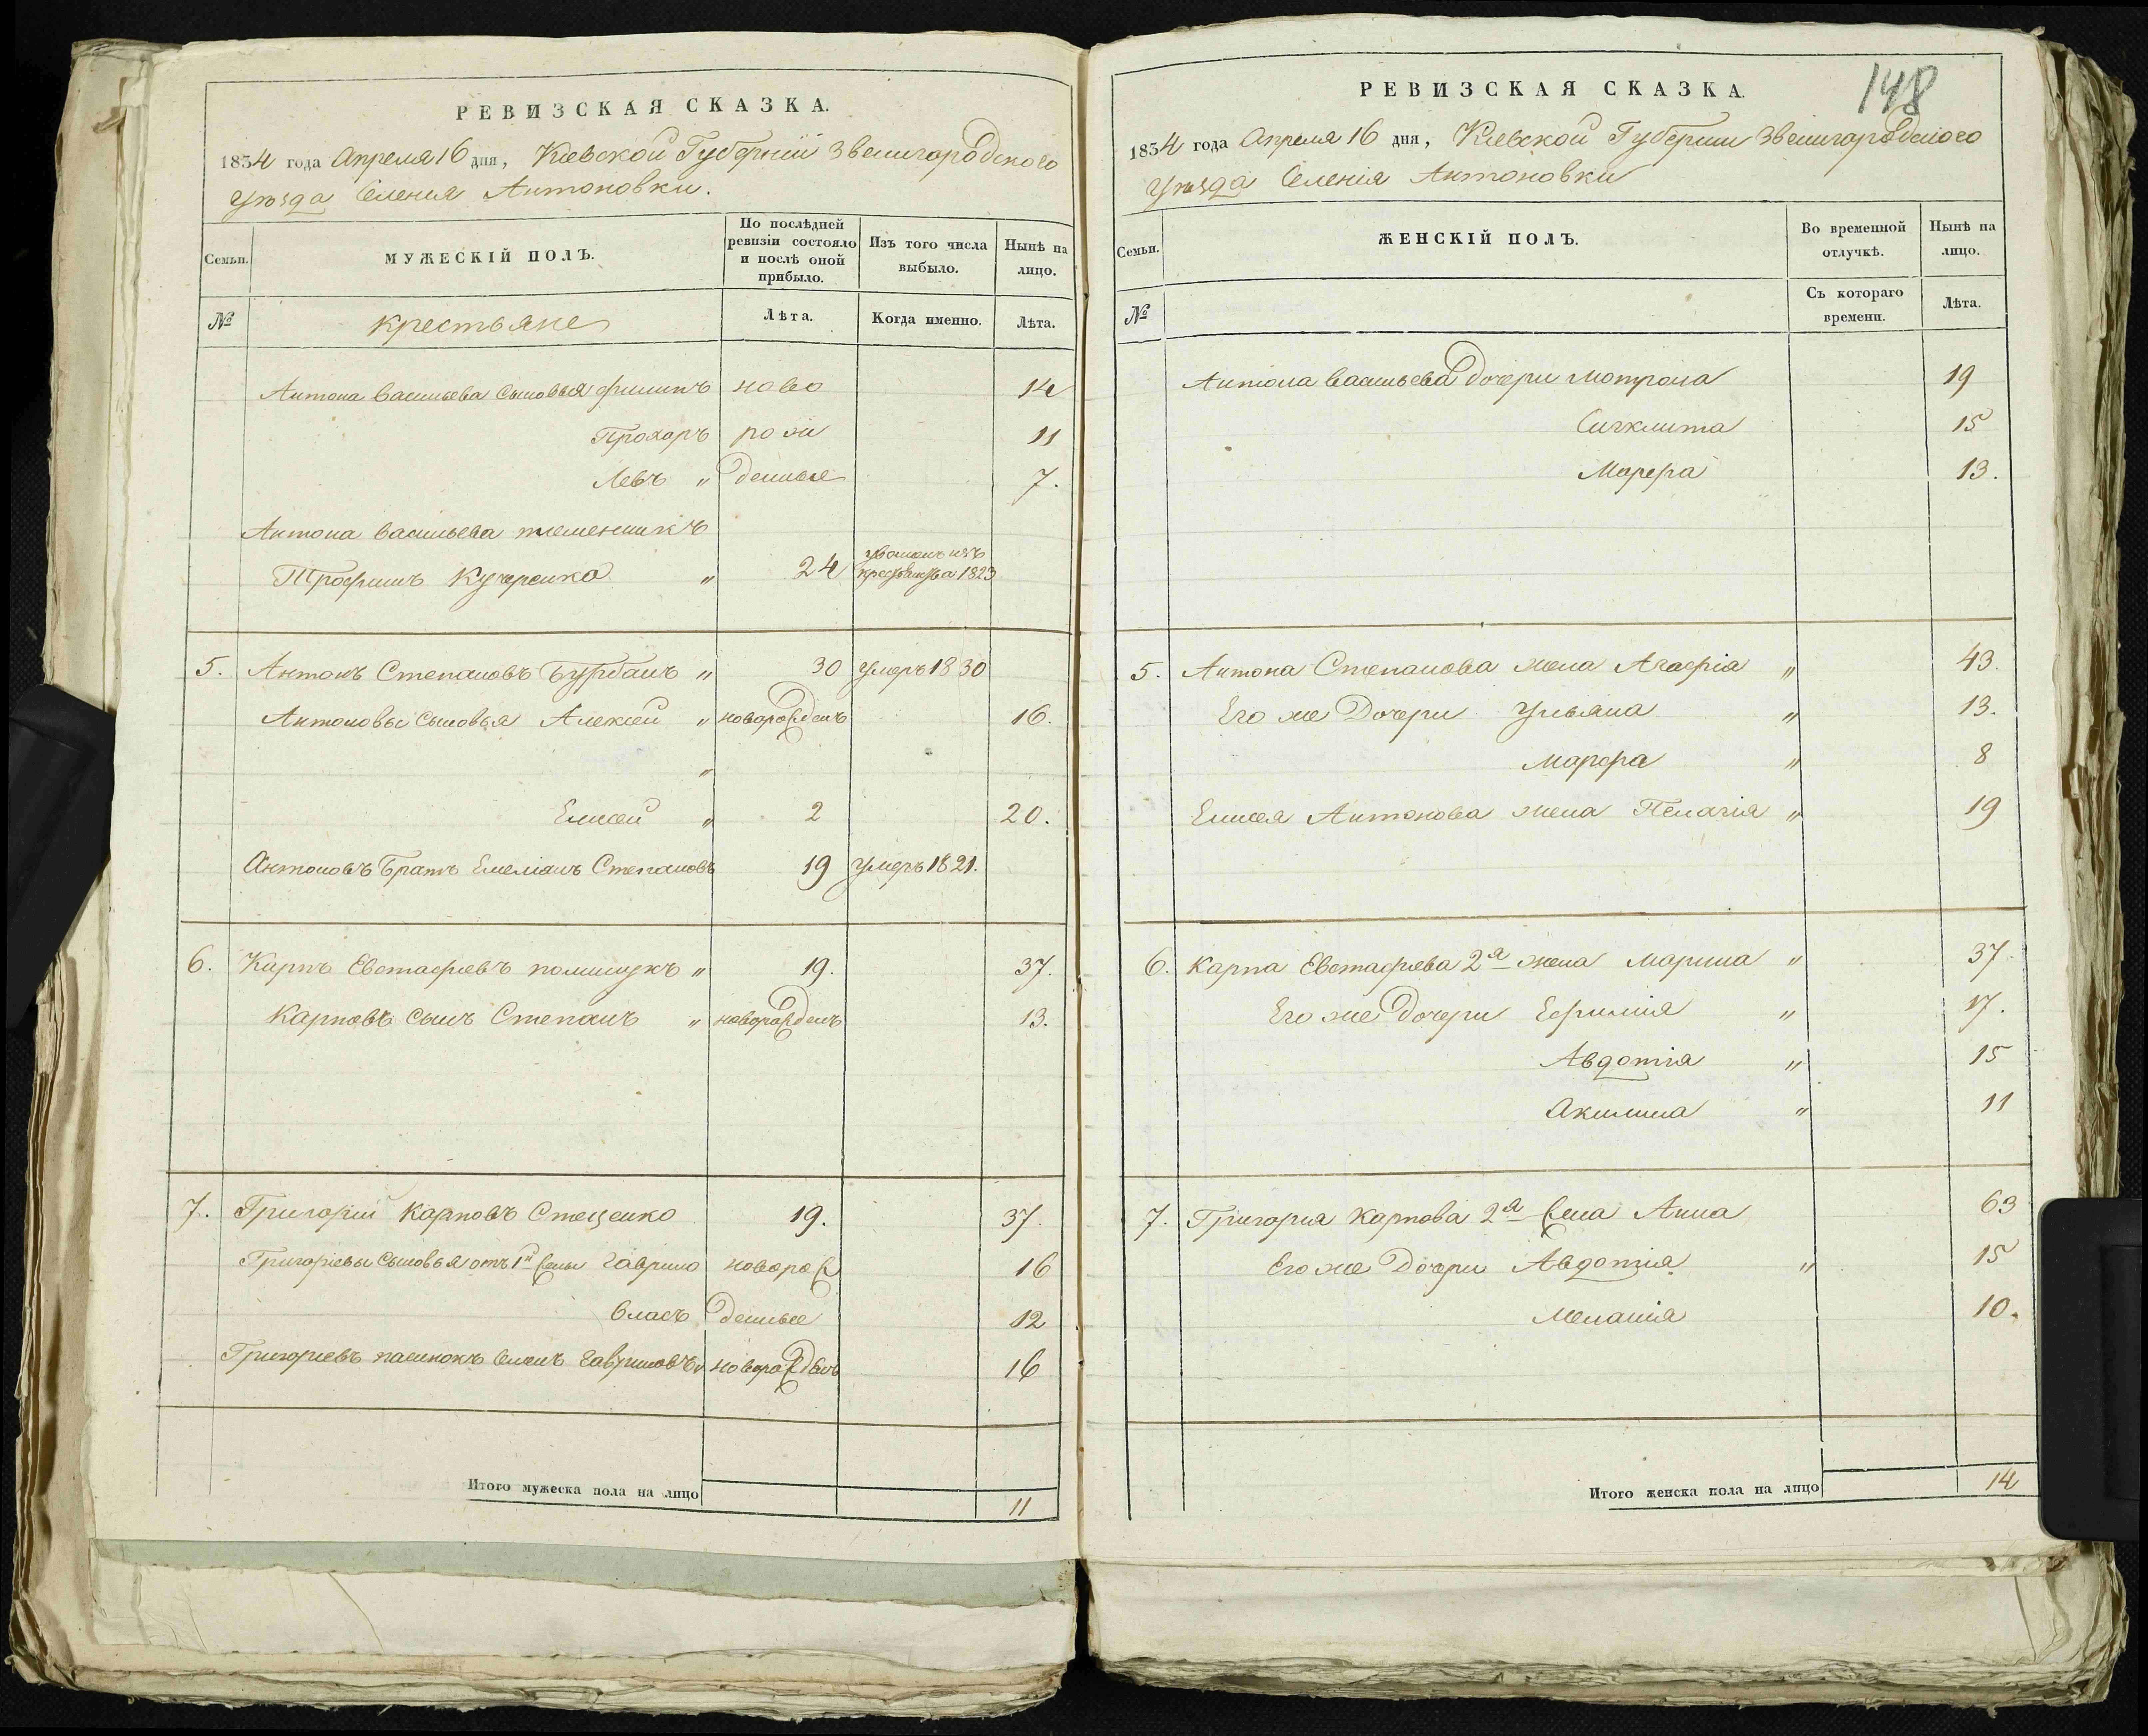 РЕВИЗСКАЯ СКАЗКА.
1834 года Апреля 16 дня, Киевской Губерніи Звенигородского
Уѣзда Селенія Антоновки.
Семьи.
МУЖЕСКІЙ ПОЛЪ.
По послѣдней ревизіи состояло и послѣ оной прибыло.
Изъ того числа выбыло.
Нынѣ на лицо.
№
крестьяне
Лѣта.
Когда именно.
Лѣта.
Антона Васильева сыновья Филипъ ново 14
Прохоръ рож 11
Левъ " денные 7.
Антона Васильева племенникъ
Трофимъ Кучеренко " 24 1823
5. Антонъ Степановъ Бурбанъ " 30 умеръ 1830
Антоновы сыновья Алексей " новорожденъ 16.
"
Елисей " 2 20.
Антоновъ Братъ Емеліанъ Степановъ 19 умеръ 1821.
6. Карпъ Евстафіевъ полищукъ " 19. 37.
Карповъ сынъ Степанъ " новорожденъ 13.
7. Григорій Карповъ Стеценко 19. 37.
Григоріевы сыновья отъ 1й жены Гаврило новорож 16
Власъ денные 12
Григоріевъ пасинокъ Семенъ Гавриловъ " новорожденъ 16
Итого мужеска пола на лицо 11
РЕВИЗСКАЯ СКАЗКА.
148
1834 года Апреля 16 дня, Киевской Губернии Звенигородского
Уѣзда Селенія Антоновки
Семьи.
ЖЕНСКІЙ ПОЛЪ.
Во временной отлучкѣ.
Нынѣ на лицо.
№
Съ котораго времени.
Лѣта.
Антона Васильева дочери Мотрона 19
Сигклита 15
Марфа 13.
5. Антона Степанова жена Агафія " 43.
Его же Дочери Ульяна " 13.
Марфа " 8
Елисея Антонова жена Пелагія " 19
6. Карпа Евстафіева 2я жена Марина " 37.
Его же Дочери Ефимия " 17.
Авдотія " 15
Акилина " 11
7. Григория Карпова 2я жена Анна 63
Его же Дочери Авдотія " 15
Меланія 10.
Итого женска пола на лицо 14